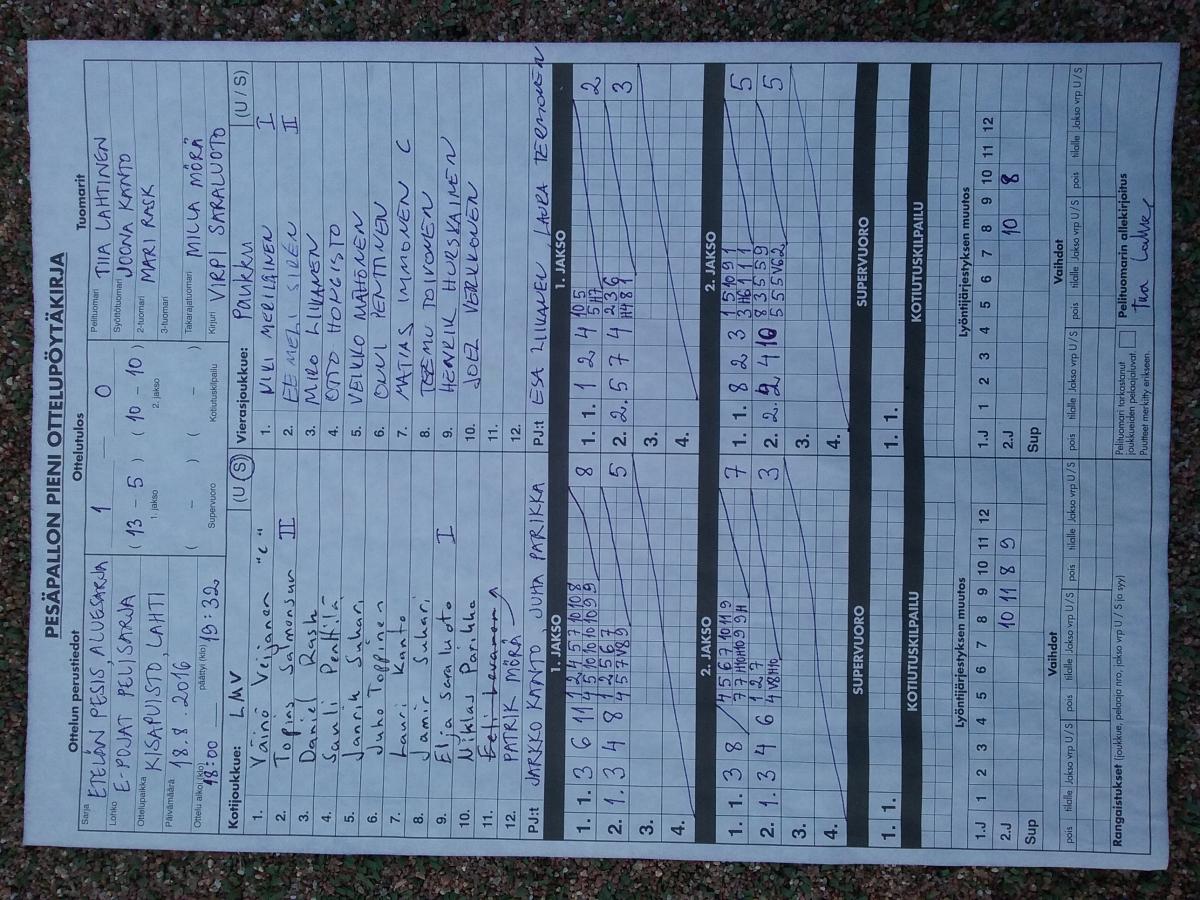 PESÄPALLON PIENI OTTELUPÖYTÄKIRJA
Ottelun perustiedot
Sarja ETELÄN PESIS, ALUESARJA
Lohko E-POJAT PELISARJA
Ottelupaikka KISAPUISTO, LAHTI
Päivämäärä 18.8.2016
Ottelu alkoi (klo) 18:00 päättyi (klo) 19:32
Ottelutulos
1 0
( 13 - 5 ) ( 10 - 10 )
1. jakso 2. jakso
( - ) ( - )
Supervuoro Kotiutuskilpailu
Tuomarit
Pelituomari TIIA LAHTINEN
Syöttötuomari JOONA KANTO
2-tuomari MARI RASK
3-tuomari
Takarajatuomari MILLA MÖRÄ
Kirjuri VIRPI SARALUOTO
Kotijoukkue: LMV (U / S)
1. Väinö Veijanen "c"
2. Topias Salmensuu II
3. Daniel Rask
4. Sauli Penttilä
5. Jannik Suhari
6. Juho Toppinen
7. Lauri Kanto
8. Jamir Suhari
9. Elja Saraluoto I
10. Niklas Parikka
11. Eeli Levanen
12. PATRIK MÖRÄ
PJ:t JARKKO KANTO, JUHA PARIKKA
Vierasjoukkue: Paukku (U / S)
1. KIKI MERILÄINEN I
2. EEMELI SIREN II
3. MIRO LIIKANEN
4. OTTO HONGISTO
5. VEIKKO MÄHÖNEN
6. OLLI PENTTINEN
7. MATIAS IMMONEN C
8. TEEMU TOIVONEN
9. HENRIK HURSKAINEN
10. JOEL VERKKONEN
11.
12.
PJ:t ESA LIIKANEN LAURA TERMONEN
1. JAKSO
1. 1. 3 6 11 1 2 4 5 7 10 10 8 8
4 5 10 10 10 10 9 9
2. 1. 3 4 8 1 2 5 6 5
4 5 7 V8 9
3.
4.
1. JAKSO
1. 1. 1 2 4 10 5 2
5 H7
2. 2. 5 7 4 2 3 6 3
H4 8 9
3.
4.
2. JAKSO
1. 1. 3 8 4 5 6 7 10 11 9 7
7 7 H10 H10 9 9 H
2. 1. 3 4 6 1 2 7 3
4 V8 H10
3.
4.
2. JAKSO
1. 1. 8 2 3 1 5 10 9 1 5
3 H6 1 1 1
2. 2. 2 4 10 8 3 5 5 9 5
5 5 5 V6 2
3.
4.
SUPERVUORO
1. 1.
SUPERVUORO
1. 1.
KOTIUTUSKILPAILU
KOTIUTUSKILPAILU
Lyöntijärjestyksen muutos
1.J 1 2 3 4 5 6 7 8 9 10 11 12
2.J 10 11 8 9
Sup
Lyöntijärjestyksen muutos
1.J 1 2 3 4 5 6 7 8 9 10 11 12
2.J 10 8
Sup
Vaihdot
pois tilalle Jakso vrp U / S pois tilalle Jakso vrp U / S pois tilalle Jakso vrp U / S
Vaihdot
pois tilalle Jakso vrp U / S pois tilalle Jakso vrp U / S pois tilalle Jakso vrp U / S
Rangaistukset (joukkue, pelaaja nro, jakso vrp U / S ja syy)
Pelituomari tarkastanut
joukkueiden pelaajaluvat.
Puutteet merkitty erikseen.
Pelituomarin allekirjoitus